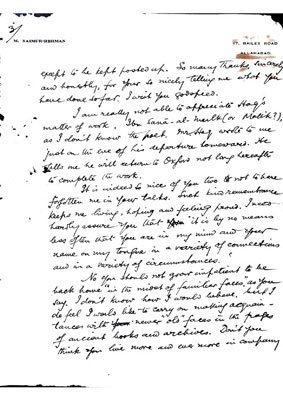 3/
M. NAIMUR REHMAN
17, BAILEY ROAD
ALLAHABAD.
except to be kept posted up. So many thanks, sincerely
and honestly, for your so nicely telling me what you
have done so far. I wish you godspeed.
I am really not able to appreciate Haq's
matter of work. Ibn Sanā-al-Mulk (or Malik?),
as I don't know the poet. Mr Haq wrote to me
just on the eve of his departure homeward. He
tells me he will return to Oxford not long hereafter
to complete the work.
It is indeed so nice of you two to not to have
forgotten me in your talks. Such kind remembrance
keeps me living, hoping and feeling proud. I need
hardly assure you that it is by no means
less often that you are in my mind and your
name on my tongue in a variety of connections
and in a variety of circumstances."
No you should not grow impatient to be
back home "in the midst of familiar faces" as you
say. I don't know how I would behave, but I
do feel I would like to carry on making acquain-
tances with newer "old" faces in the pages
of ancient books and archives. Don't you
think you live more and ever more in company